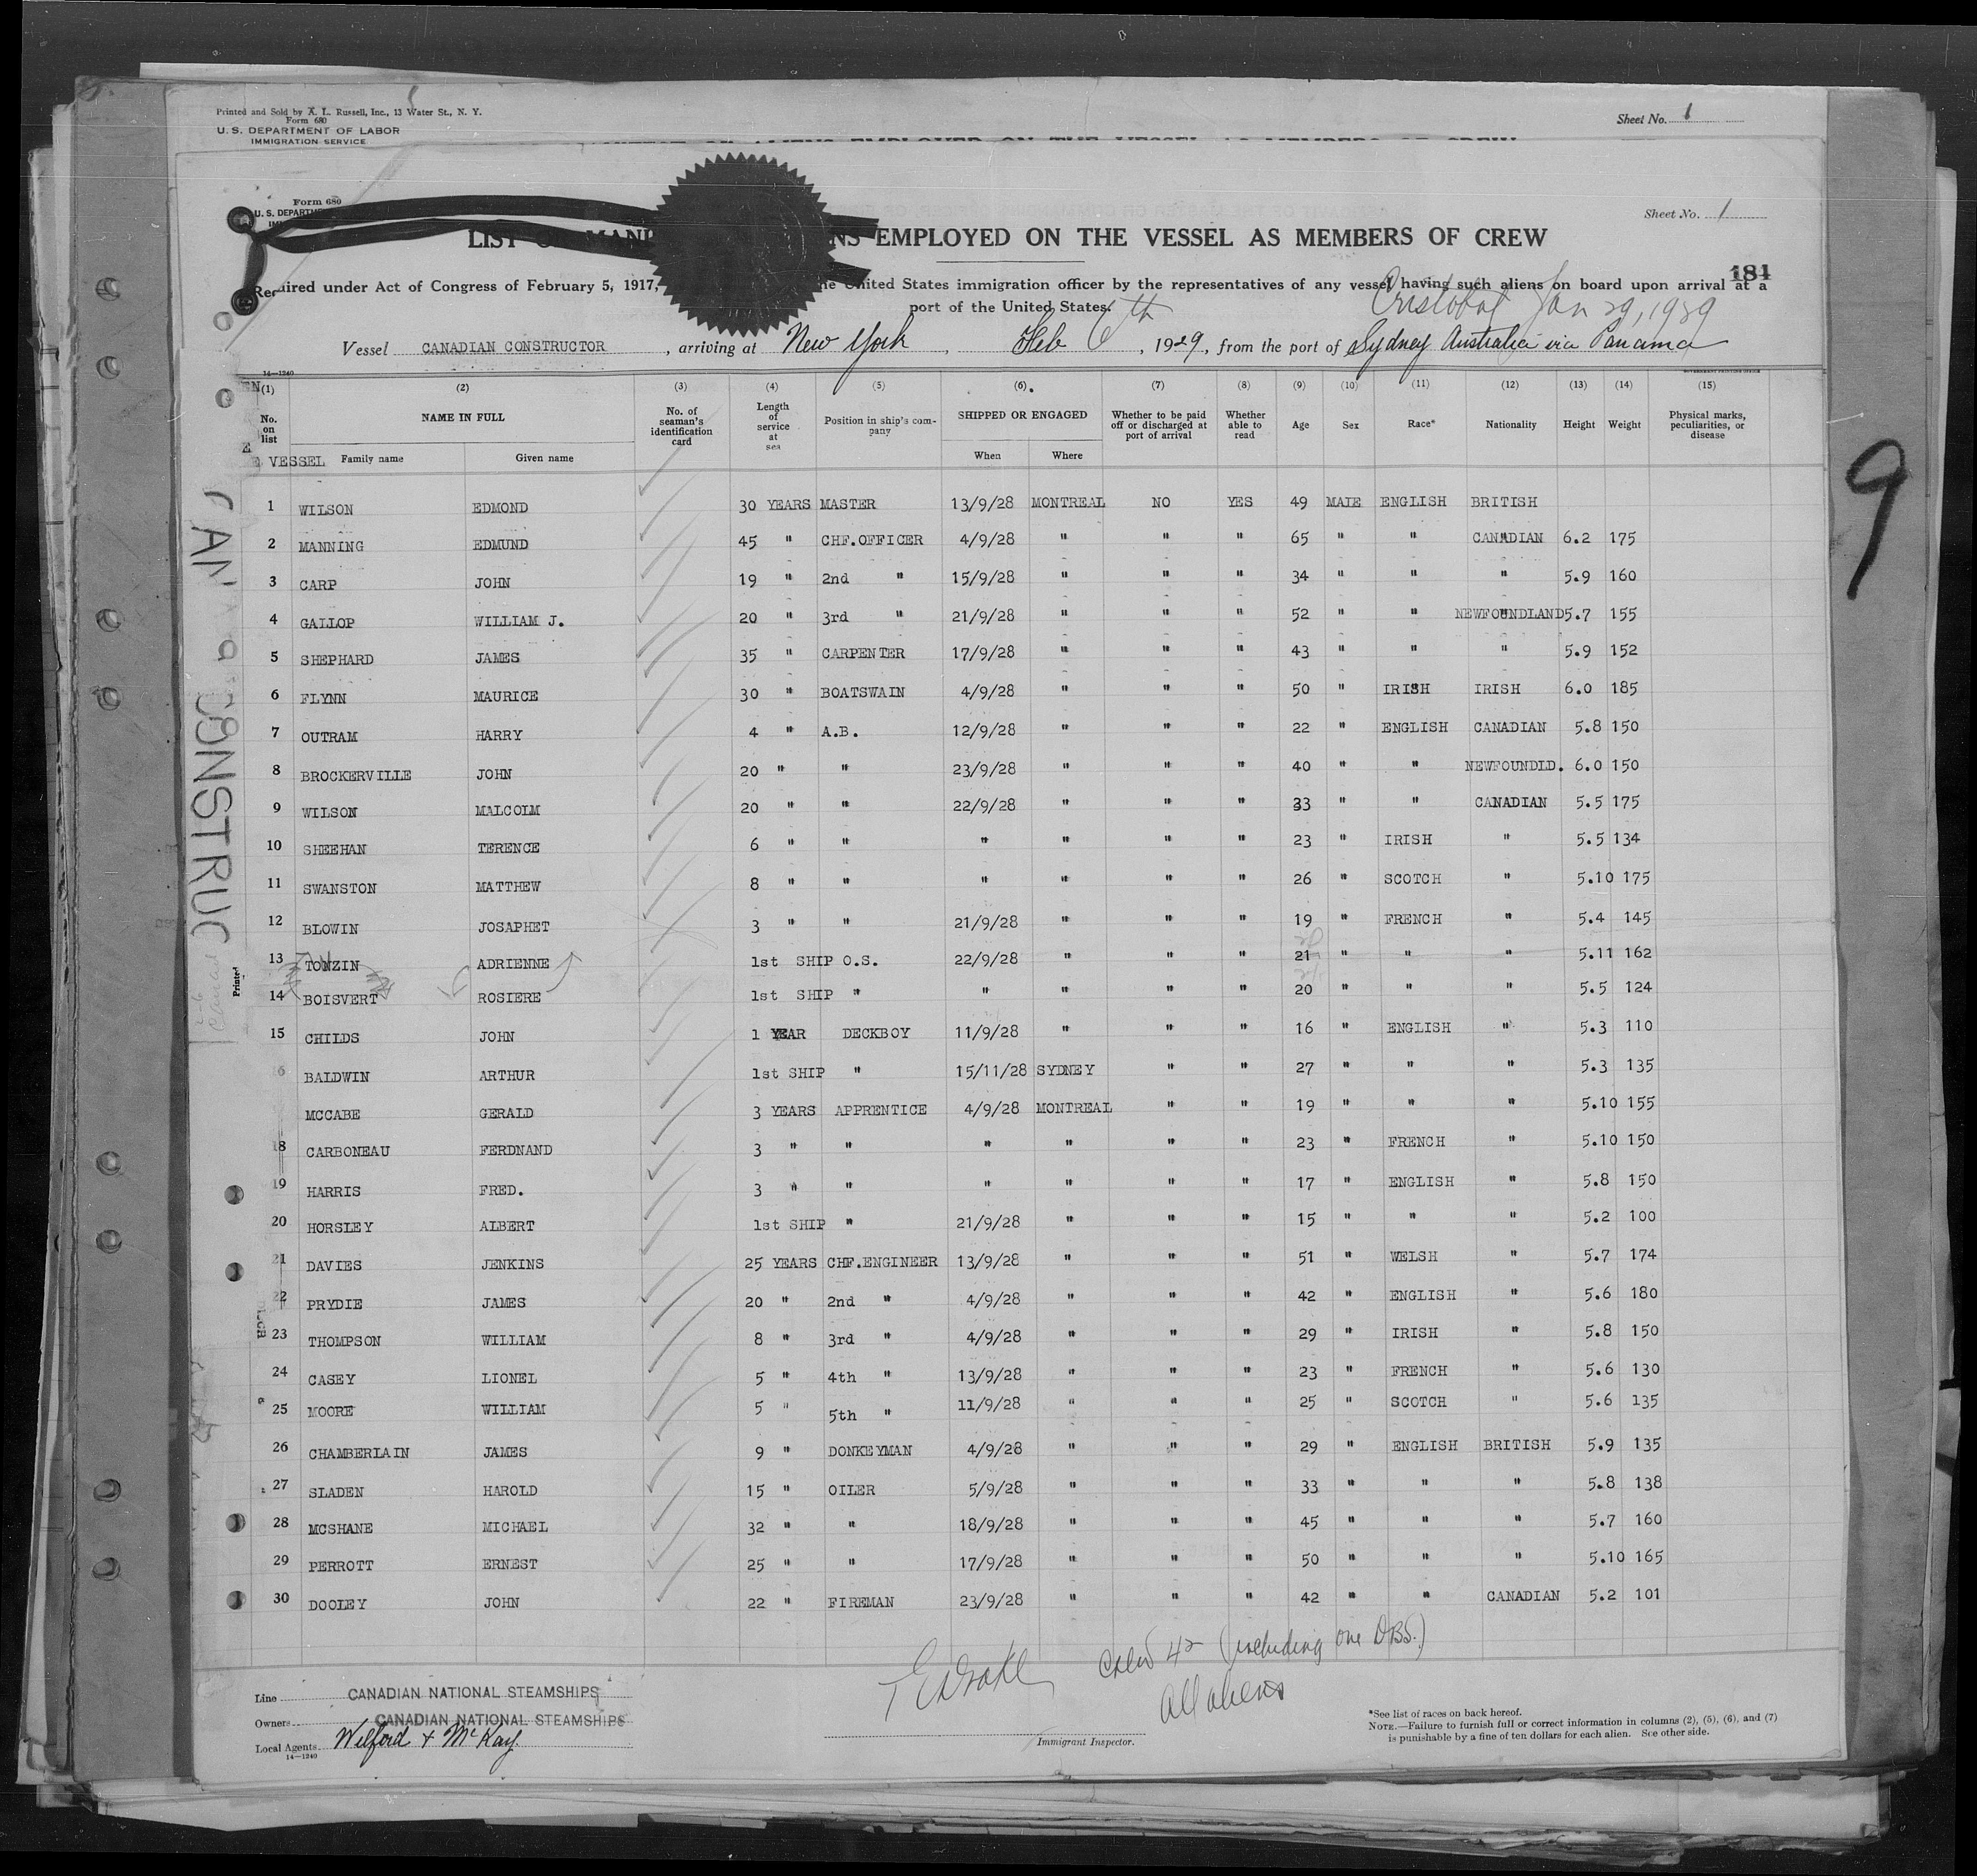 Printed and Sold by A. L. Russell, Inc., 13 Water St., N. Y.
Form 680
U. S. DEPARTMENT OF LABOR
IMMIGRATION SERVICE
Sheet No. 1
Form 680
U. S. DEPARTM
Sheet No. 1
LIST O MANI NS EMPLOYED ON THE VESSEL AS MEMBERS OF CREW
184
Required under Act of Congress of February 5, 1917, he United States immigration officer by the representatives of any vessel having such aliens on board upon arrival at a
port of the United States.
Cristobal Jan 29, 1929
Vessel CANADIAN CONSTRUCTOR, arriving at New York, Feb 6th, 1929, from the port of Sydney Australia via Panama
14—1240
(1) (2) (3) (4) (5) (6) (7) (8) (9) (10) (11) (12) (13) (14) (15)
No. on list NAME IN FULL No. of seaman's identification card Length of service at sea Position in ship's company SHIPPED OR ENGAGED Whether to be paid off or discharged at port of arrival Whether able to read Age Sex Race* Nationality Height Weight Physical marks, peculiarities, or disease
E VESSEL Family name Given name When Where
1 WILSON EDMOND 30 YEARS MASTER 13/9/28 MONTREAL NO YES 49 MALE ENGLISH BRITISH
2 MANNING EDMUND 45 " CHF.OFFICER 4/9/28 " " " 65 " " CANADIAN 6.2 175
3 CARP JOHN 19 " 2nd " 15/9/28 " " " 34 " " " 5.9 160
4 GALLOP WILLIAM J. 20 " 3rd " 21/9/28 " " " 52 " " NEWFOUNDLAND 5.7 155
5 SHEPHARD JAMES 35 " CARPENTER 17/9/28 " " " 43 " " " 5.9 152
6 FLYNN MAURICE 30 " BOATSWAIN 4/9/28 " " " 50 " IRISH IRISH 6.0 185
7 OUTRAM HARRY 4 " A.B. 12/9/28 " " " 22 " ENGLISH CANADIAN 5.8 150
8 BROCKERVILLE JOHN 20 " " 23/9/28 " " " 40 " " NEWFOUNDLD. 6.0 150
9 WILSON MALCOLM 20 " " 22/9/28 " " " 33 " " CANADIAN 5.5 175
10 SHEEHAN TERENCE 6 " " " " " " 23 " IRISH " 5.5 134
11 SWANSTON MATTHEW 8 " " " " " " 26 " SCOTCH " 5.10 175
12 BLOWIN JOSAPHET 3 " " 21/9/28 " " " 19 " FRENCH " 5.4 145
13 TONZIN ADRIENNE 1st SHIP O.S. 22/9/28 " " " 21 " " " 5.11 162
14 BOISVERT ROSIERE 1st SHIP " " " " " 20 " " " 5.5 124
15 CHILDS JOHN 1 YEAR DECKBOY 11/9/28 " " " 16 " ENGLISH " 5.3 110
6 BALDWIN ARTHUR 1st SHIP " 15/11/28 SYDNEY " " 27 " " " 5.3 135
MCCABE GERALD 3 YEARS APPRENTICE 4/9/28 MONTREAL " " 19 " " " 5.10 155
18 CARBONEAU FERDNAND 3 " " " " " " 23 " FRENCH " 5.10 150
19 HARRIS FRED. 3 " " " " " " 17 " ENGLISH " 5.8 150
20 HORSLEY ALBERT 1st SHIP " 21/9/28 " " " 15 " " " 5.2 100
21 DAVIES JENKINS 25 YEARS CHF.ENGINEER 13/9/28 " " " 51 " WELSH " 5.7 174
22 PRYDIE JAMES 20 " 2nd " 4/9/28 " " " 42 " ENGLISH " 5.6 180
23 THOMPSON WILLIAM 8 " 3rd " 4/9/28 " " " 29 " IRISH " 5.8 150
24 CASEY LIONEL 5 " 4th " 13/9/28 " " " 23 " FRENCH " 5.6 130
25 MOORE WILLIAM 5 " 5th " 11/9/28 " " " 25 " SCOTCH " 5.6 135
26 CHAMBERLAIN JAMES 9 " DONKEYMAN 4/9/28 " " " 29 " ENGLISH BRITISH 5.9 135
27 SLADEN HAROLD 15 " OILER 5/9/28 " " " 33 " " " 5.8 138
28 MCSHANE MICHAEL 32 " " 18/9/28 " " " 45 " " " 5.7 160
29 PERROTT ERNEST 25 " " 17/9/28 " " " 50 " " " 5.10 165
30 DOOLEY JOHN 22 " FIREMAN 23/9/28 " " " 42 " " CANADIAN 5.2 101
9
CONSTRUC
Printed
Crew 42 (including one DBS.)
All aliens
Line CANADIAN NATIONAL STEAMSHIPS
Owners CANADIAN NATIONAL STEAMSHIPS
Local Agents Welford & McKay
14—1240
Immigrant Inspector.
*See list of races on back hereof.
NOTE.—Failure to furnish full or correct information in columns (2), (5), (6), and (7)
is punishable by a fine of ten dollars for each alien. See other side.